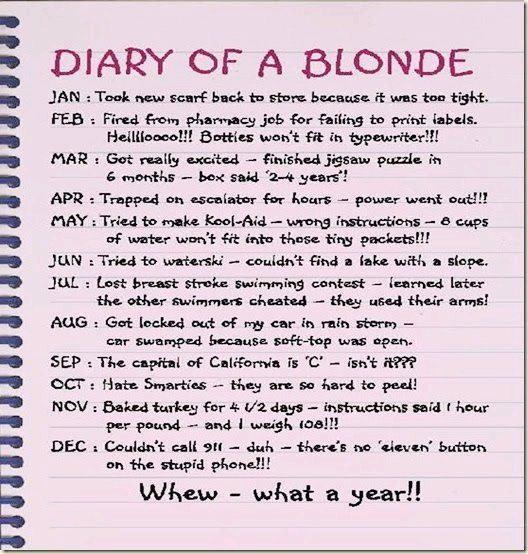 DIARY OF A BLONDE
JAN : Took new scarf back to store because it was too tight.
FEB : Fired from pharmacy job for failing to print labels.
Helllloooo!!! Bottles won't fit in typewriter!!!
MAR : Got really excited – finished jigsaw puzzle in
6 months – box said '2-4 years'!
APR : Trapped on escalator for hours – power went out!!!
MAY : Tried to make Kool-Aid – wrong instructions – 8 cups
of water won't fit into those tiny packets!!!
JUN : Tried to waterski – couldn't find a lake with a slope.
JUL : Lost breast stroke swimming contest – learned later
the other swimmers cheated – they used their arms!
AUG : Got locked out of my car in rain storm –
car swamped because soft-top was open.
SEP : The capital of California is 'C' – isn't it???
OCT : Hate Smarties – they are so hard to peel!
NOV : Baked turkey for 4 1/2 days – instructions said 1 hour
per pound – and I weigh 108!!!
DEC : Couldn't call 911 – duh – there's no 'eleven' button
on the stupid phone!!!
Whew – what a year!!